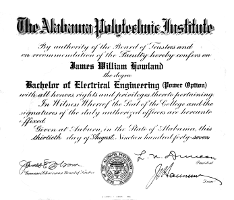 The Alabama Polytechnic Institute
By authority of the Board of Trustees and
on recommendation of the Faculty hereby confers on
James William Howland
the degree
Bachelor of Electrical Engineering (Power Option)
with all honors rights and privileges thereto pertaining.
In Witness Whereof the Seal of the College and the
signatures of the duly authorized officers are hereunto
affixed.
Given at Auburn, in the State of Alabama, this
thirtieth day of August, Nineteen hundred forty-seven
L. N. Duncan